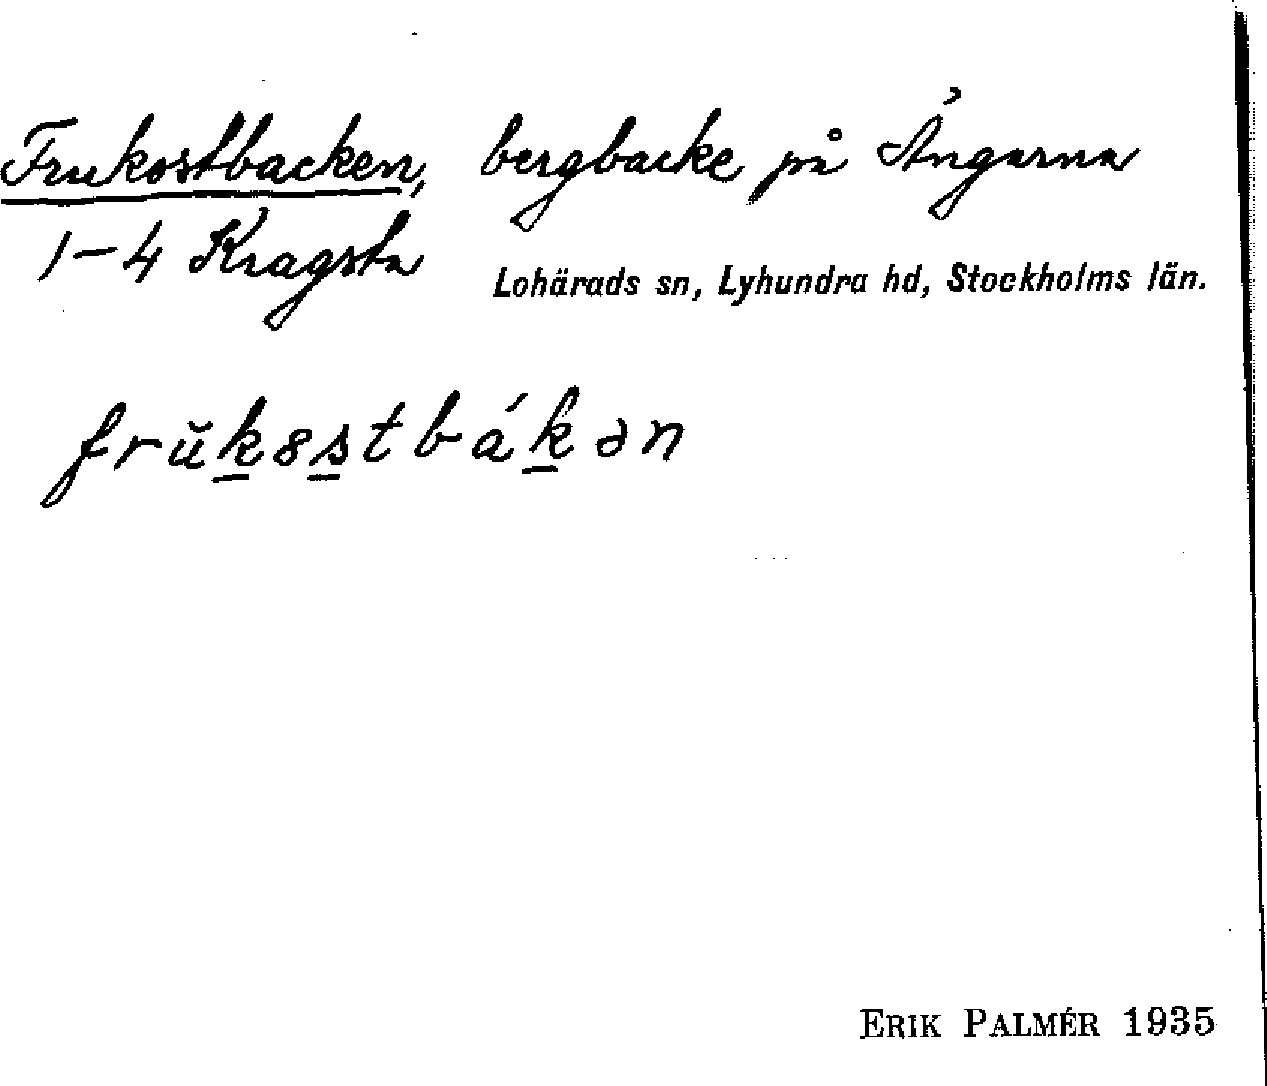 Frukostbacken, bergbacke på Ängarna
1-4 Kragsta
Lohärads sn, Lyhundra hd, Stockholms län.
frŭk8stbákən
ERIK PALMÉR 1935